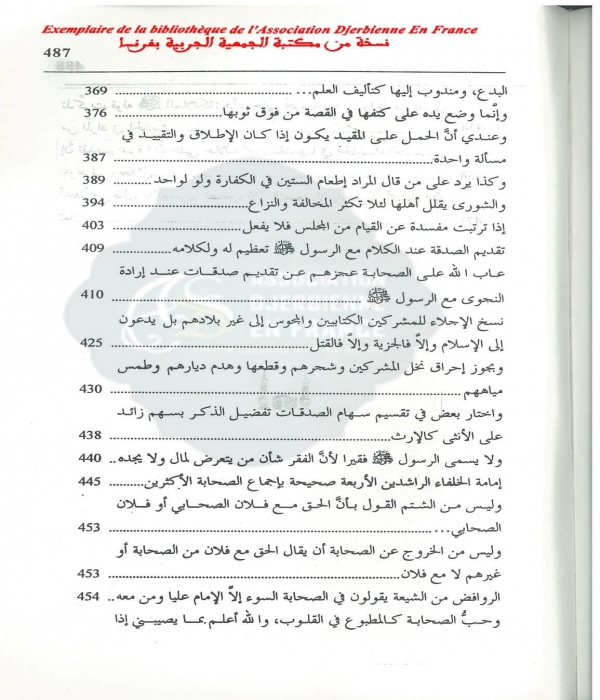 Exemplaire de la bibliothèque de l'Association Djerbienne En France
نسخة من مكتبة الجمعية الجربية بفرنسا
487
البدع، ومندوب إليها كتأليف العلم... 369
وإنَّما وضع يده على كتفها في القصة من فوق ثوبها 376
وعندي أنَّ الحمل على المقيد يكون إذا كان الإطلاق والتقييد في
مسألة واحدة 387
وكذا يرد على من قال المراد إطعام الستين في الكفارة ولو لواحد 389
والشورى يقلل أهلها لئلا تكثر المخالفة والنزاع 394
إذا ترتبت مفسدة عن القيام من المجلس فلا يفعل 403
تقديم الصدقة عند الكلام مع الرسول ﷺ تعظيم له ولكلامه 409
عاب الله على الصحابة عجزهم عن تقديم صدقات عند إرادة
النجوى مع الرسول ﷺ 410
نسخ الإجلاء للمشركين الكتابيين والمجوس إلى غير بلادهم بل يدعون
إلى الإسلام وإلاَّ فالجزية وإلاَّ فالقتل 425
ويجوز إحراق نخل المشركين وشجرهم وقطعها وهدم ديارهم وطمس
مياههم 430
واختار بعض في تقسيم سهام الصدقات تفضيل الذكر بسهم زائد
على الأنثى كالإرث 438
ولا يسمى الرسول ﷺ فقيرا لأنَّ الفقر شأن من يتعرض لمال ولا يجده.. 440
إمامة الخلفاء الراشدين الأربعة صحيحة بإجماع الصحابة الأكثرين 445
وليس من الشتم القول بأنَّ الحق مع فلان الصحابي أو فلان
الصحابي... 453
وليس من الخروج عن الصحابة أن يقال الحق مع فلان من الصحابة أو
غيرهم لا مع فلان 453
الروافض من الشيعة يقولون في الصحابة السوء إلاَّ الإمام عليا ومن معه.. 454
وحبُّ الصحابة كالمطبوع في القلوب، والله أعلم بما يصيبني إذا
ASSOCIATION
DJERBIENNE
EN FRANCE